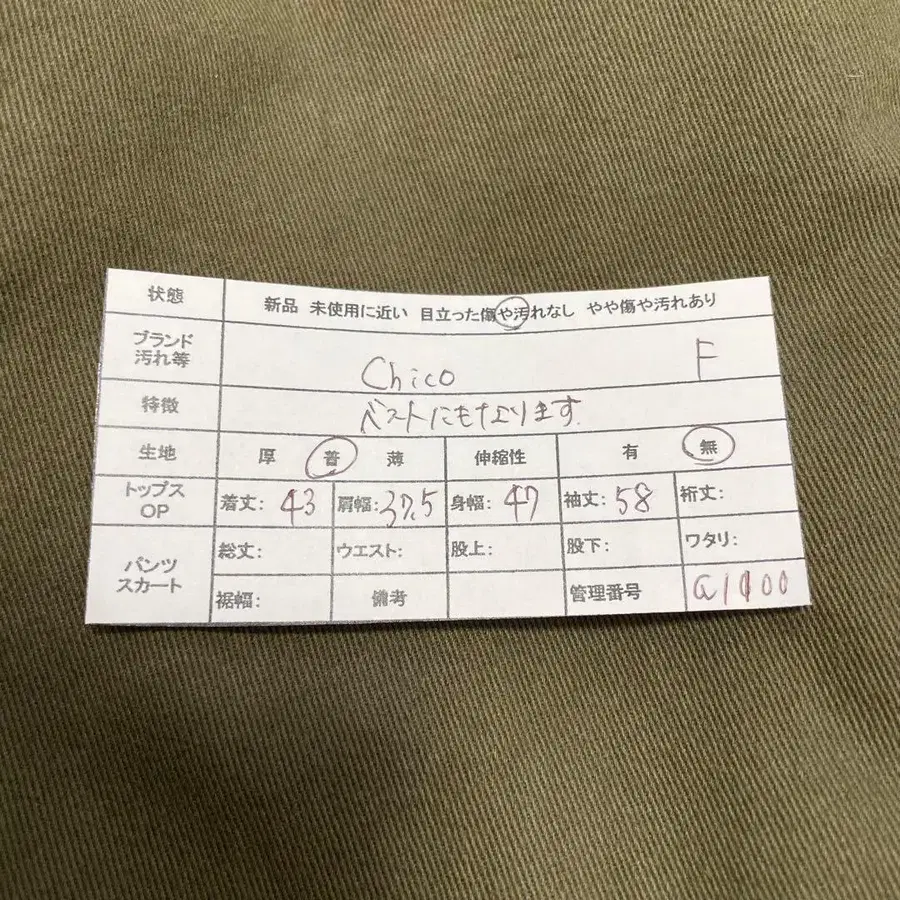 状態 新品 未使用に近い 目立った傷や汚れなし やや傷や汚れあり
ブランド
汚れ等 Chico F
特徴 ベストにもなります.
生地 厚 普 薄 伸縮性 有 無
トップス
OP 着丈: 43 肩幅: 37.5 身幅: 47 袖丈: 58 裄丈:
パンツ
スカート 総丈: ウエスト: 股上: 股下: ワタリ:
裾幅: 備考 管理番号 a1100